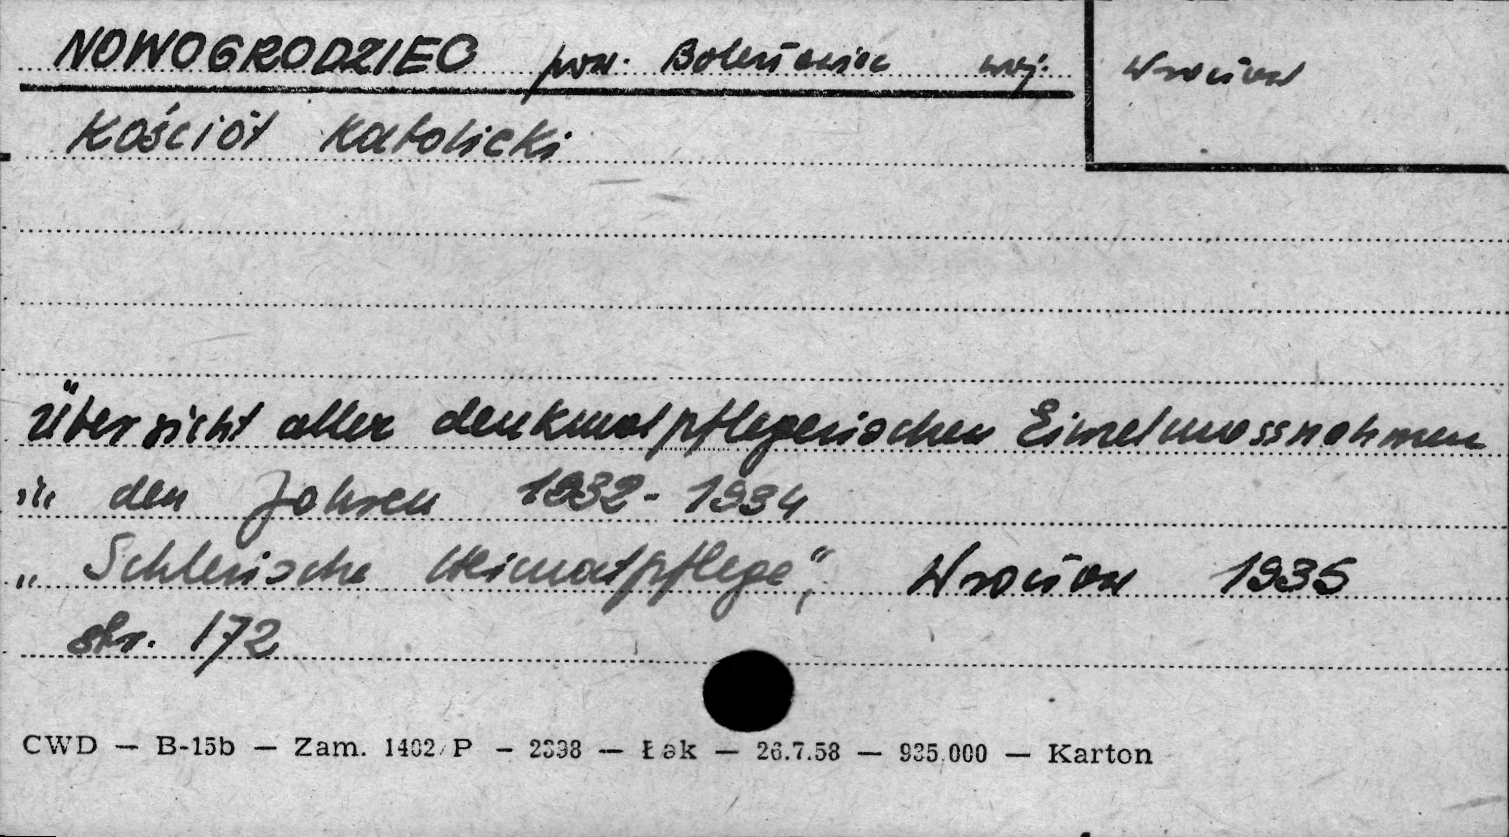 NOWOGRODZIEC pow. Bolesławiec woj. Wrocław
Kościół Katolicki
Übersicht aller denkmalpflegerischen Einzelmassnahmen
in den Jahren 1932-1934
„Schlesische Heimatpflege", Wrocław 1935
str. 172
CWD — B-15b — Zam. 1402/P — 2398 — Łek — 26.7.58 — 935.000 — Karton